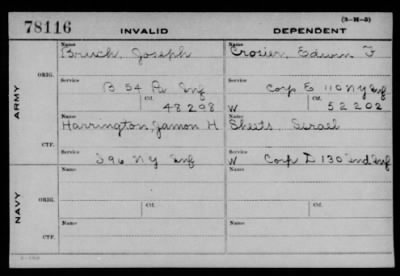 (3-M-3)
78116 INVALID DEPENDENT
Name Name
Brisch, Joseph Crosier, Edwin F
ORIG.
Service Service
B 54 Pa Inf Corp E 110 N Y Inf
Ctf. Ctf.
48298 W 52202
ARMY
Name Name
Harrington, Jamon H Sheets, Israel
CTF.
Service Service
I 96 N Y Inf W Corp I 130 Ind Inf
Name Name
ORIG.
Service Service
Ctf. Ctf.
NAVY
Name Name
CTF.
Service Service